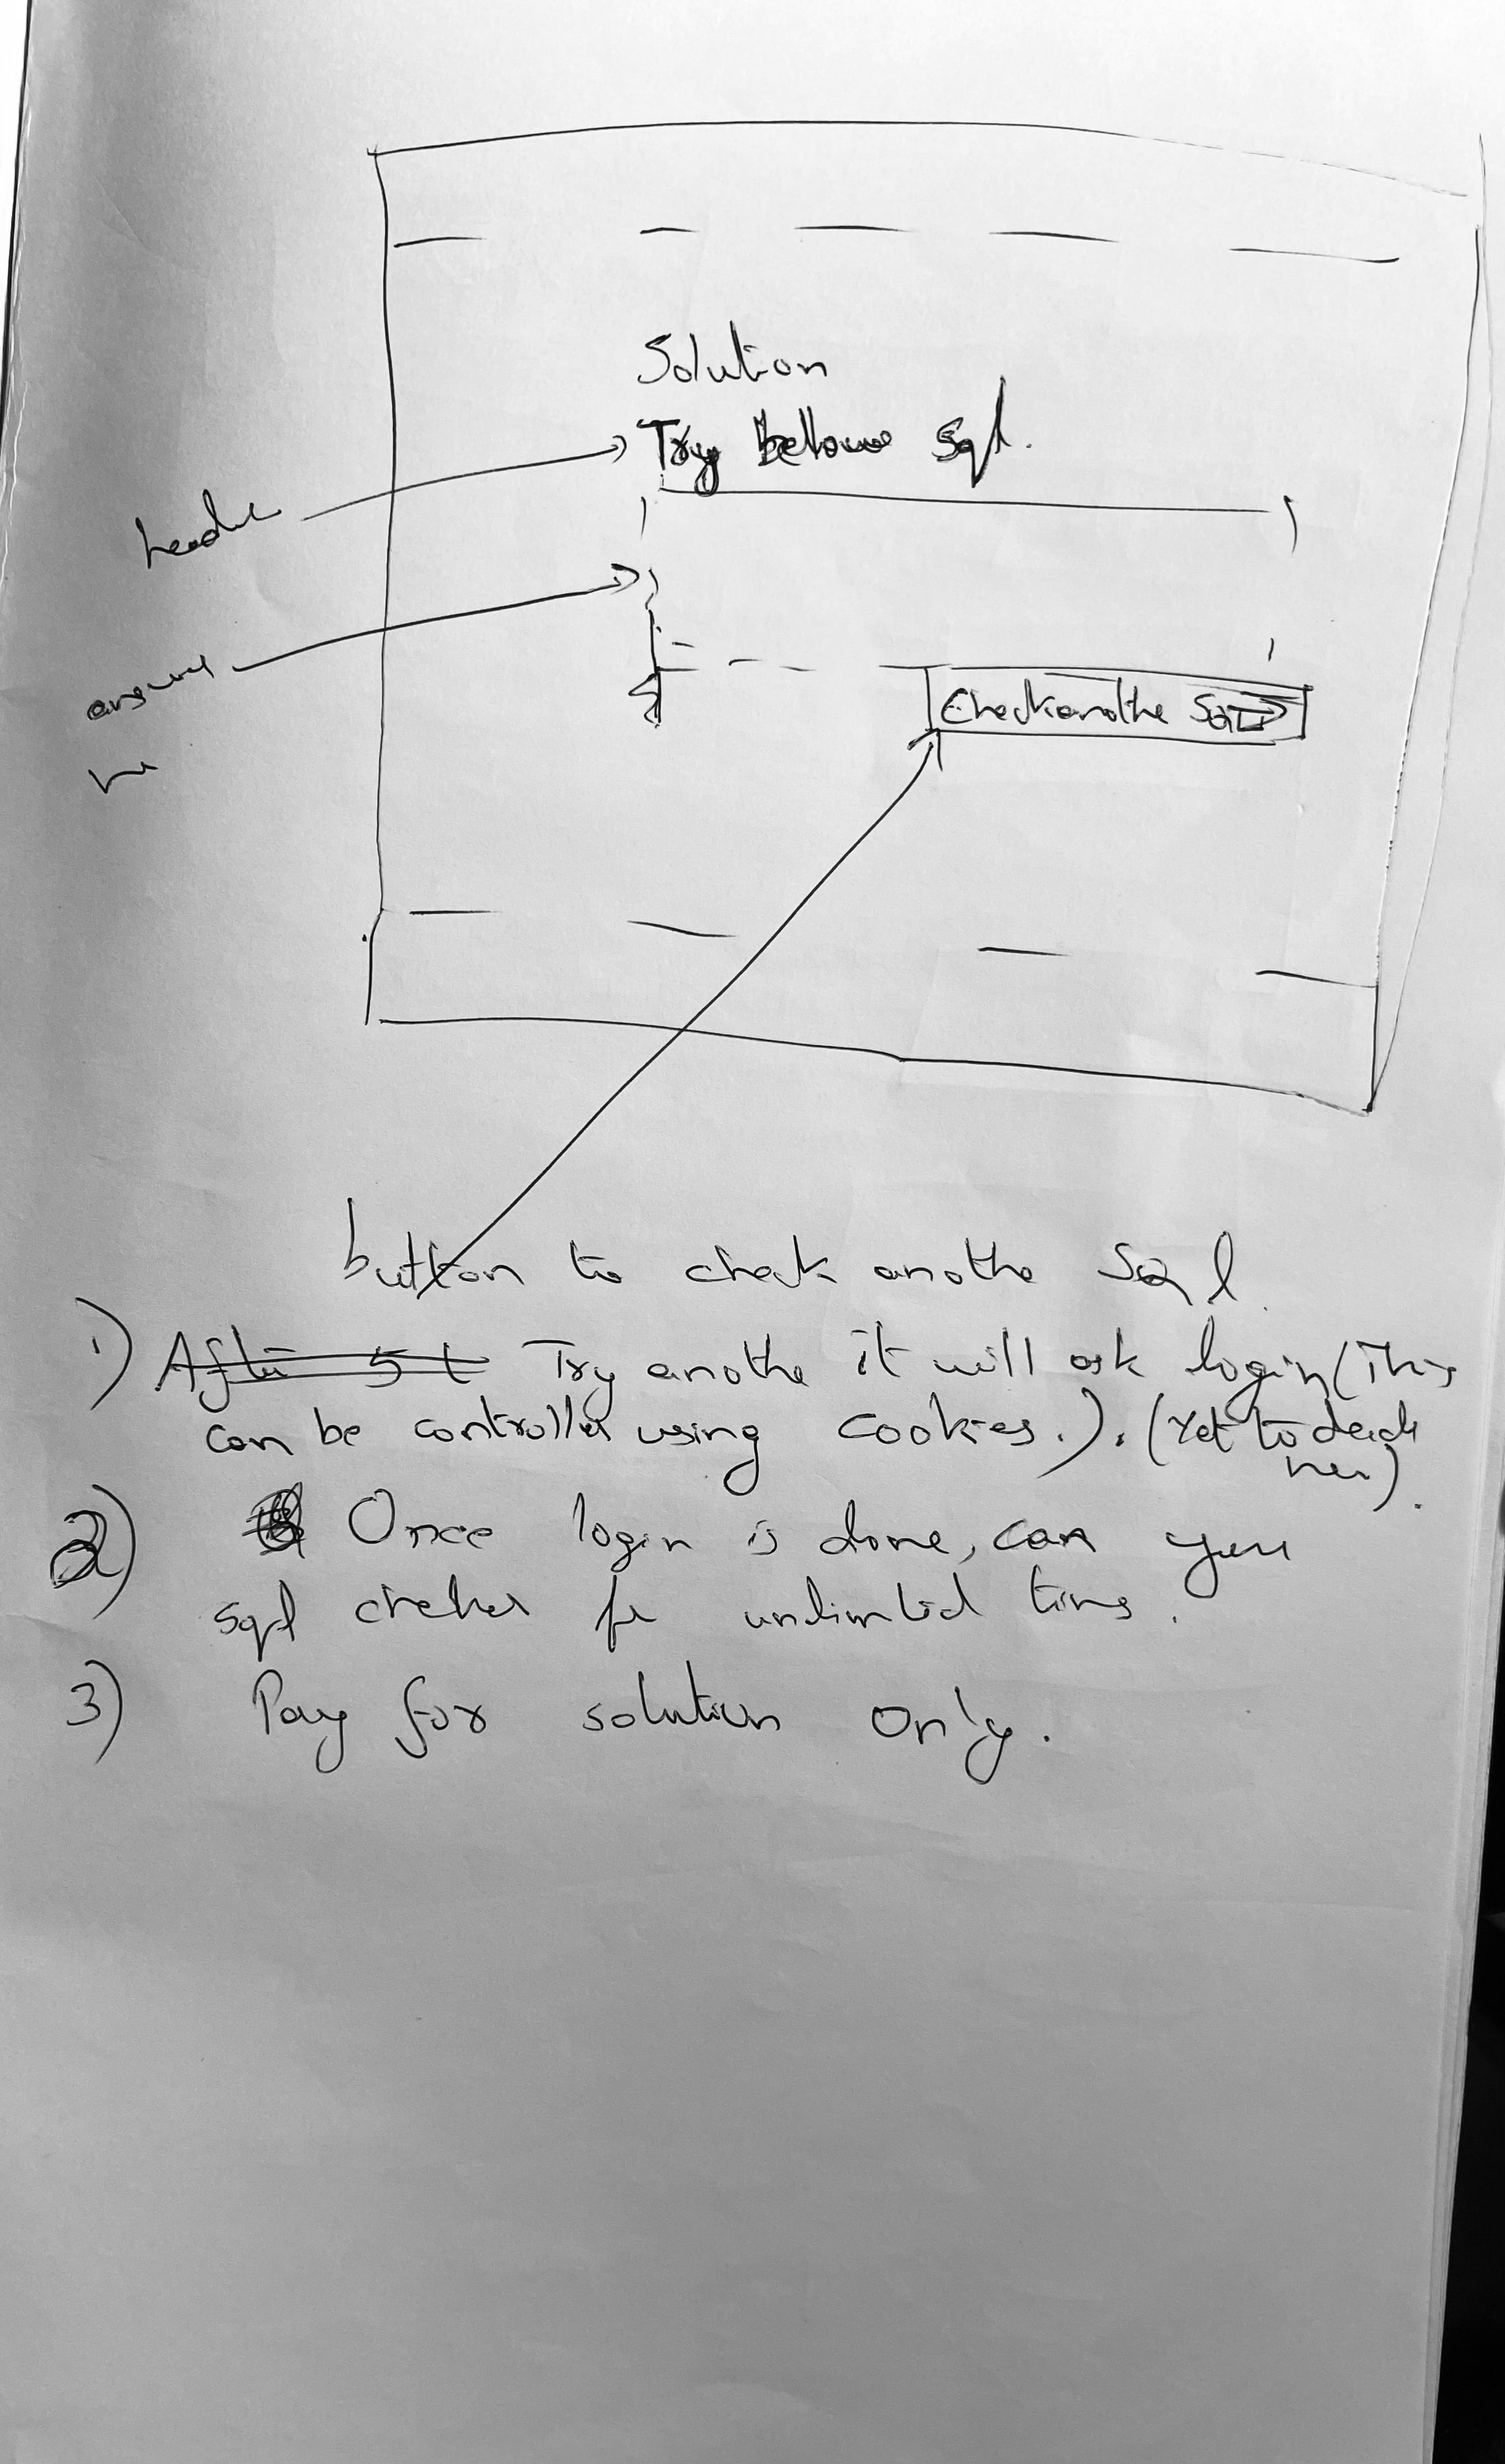 Solution
Try bellow sql.
header
answer
Check anothe SQL
button to check anothe Sql.
1) After 5 t Try anothe it will ask login (This
can be controlled using cookies.). (Yet to decide
2) Once login is done, can you
sql cheker for unlimited time.
3) Pay for solution only.